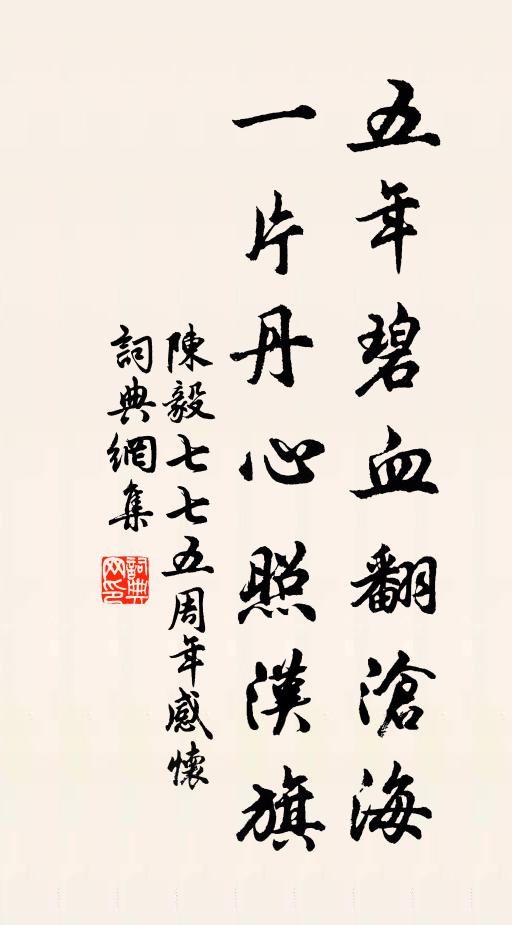 五年碧血翻滄海
一片丹心照漢旗
陳毅七七五周年感懷
詞典網集
詞典网印